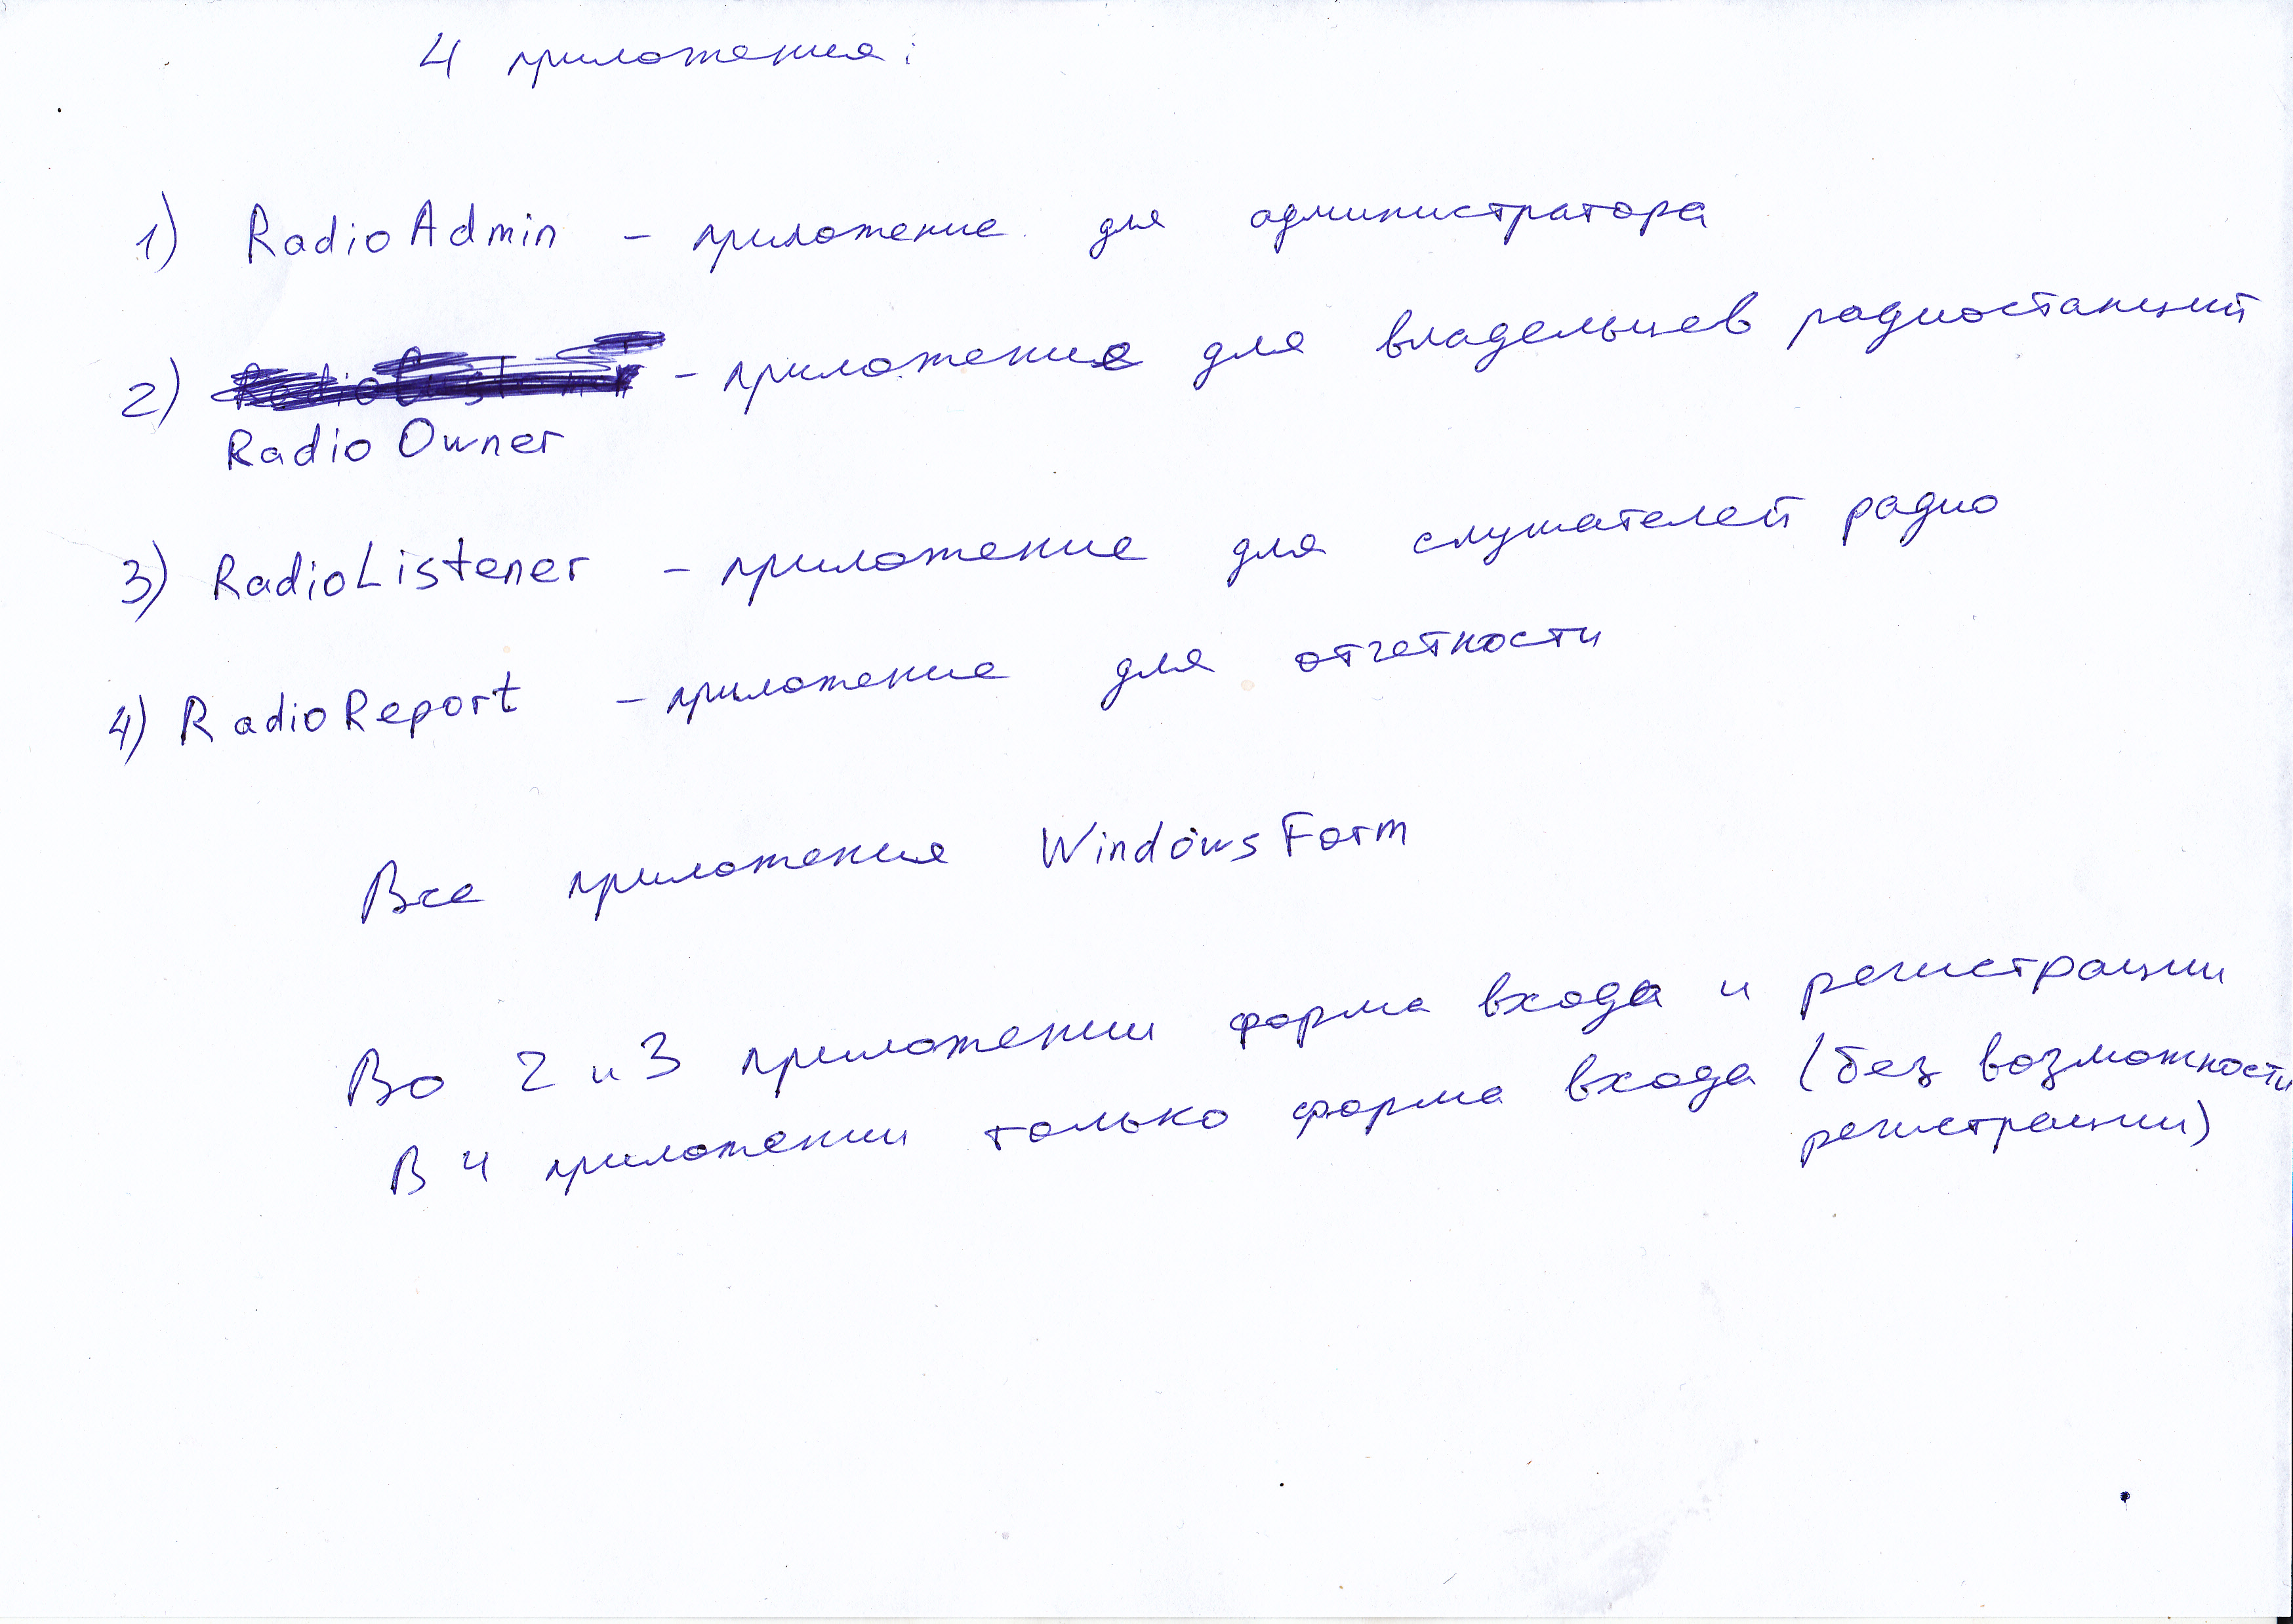 4 приложения:
1) RadioAdmin - приложение для администратора
2) - приложение для владельцев радиостанций
Radio Owner
3) RadioListener - приложение для слушателей радио
4) RadioReport - приложение для отчетности
Все приложения WindowsForm
Во 2 и 3 приложении форма входа и регистрации
В 4 приложении только форма входа (без возможности
регистрации)